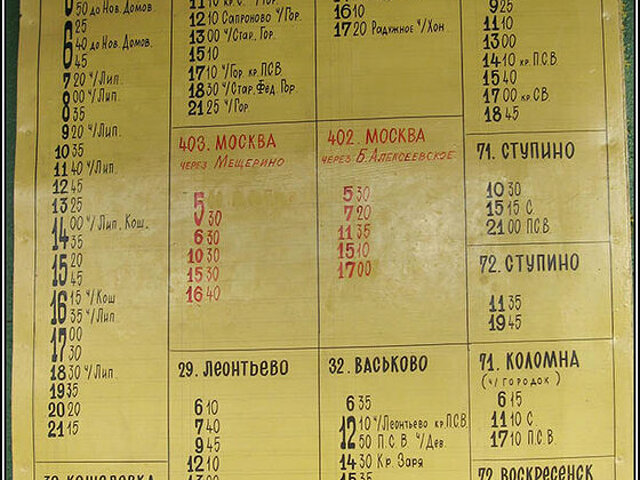 50 до Нов. Домов.
25
6 40 до Нов. Домов.
45
7 20 ч/Лип
8 00 ч/Лип.
8 35
9 20 ч/Лип.
10 35
11 40 ч/Лип
12 45
13 25
14 00 ч/Лип, Кош.
35
15 20
45
16 15 ч/Кош
35 ч/Лип
17 00
30
18 30 ч/Лип
19 35
20 20
21 15
12 10 Сапроново ч/Гор.
13 00 ч/Стар, Гор.
15 10
17 10 ч/Гор. кр. ПСВ
18 30 ч/Стар, Фёд, Гор.
21 25 ч/Гор.
403. МОСКВА
ЧЕРЕЗ МЕЩЕРИНО
5
30
6 30
10 30
15 30
16 40
29. ЛЕОНТЬЕВО
6 10
7 40
9 45
12 10
16 10
17 20 Радужное ч/Хон
402. МОСКВА
ЧЕРЕЗ Б. АЛЕКСЕЕВСКОЕ
5 30
7 20
11 35
15 10
17 00
32. ВАСЬКОВО
6 35
12 10 ч/Леонтьево кр. П.С.В
50 П.С.В ч/Дев.
14 30 Кр. Заря
15 35
9 25
11 10
13 00
14 10 кр. П.С.В
15 40
17 00 кр. СВ
18 45
71. СТУПИНО
10 30
15 15 С
21 00 П.С.В
72. СТУПИНО
11 35
19 45
71. КОЛОМНА
(ч/ ГОРОДОК)
6 15
11 10 С
17 10 П.С.В.
72. ВОСКРЕСЕНСК